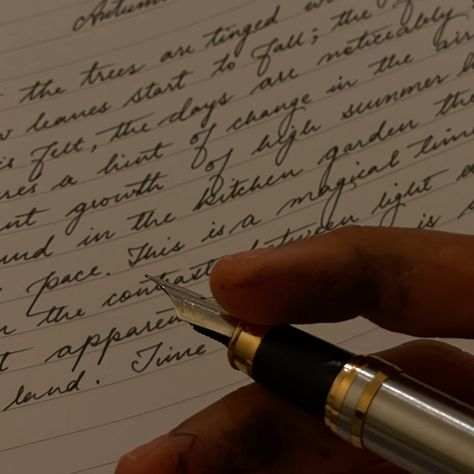 Autumn
the trees are tinged
leaves start to fall; the
is felt, the days are noticeably
a hint of change in the air
growth of high summer
in the kitchen garden
pace. This is a magical time
the contrast between light
apparent is
land. Time